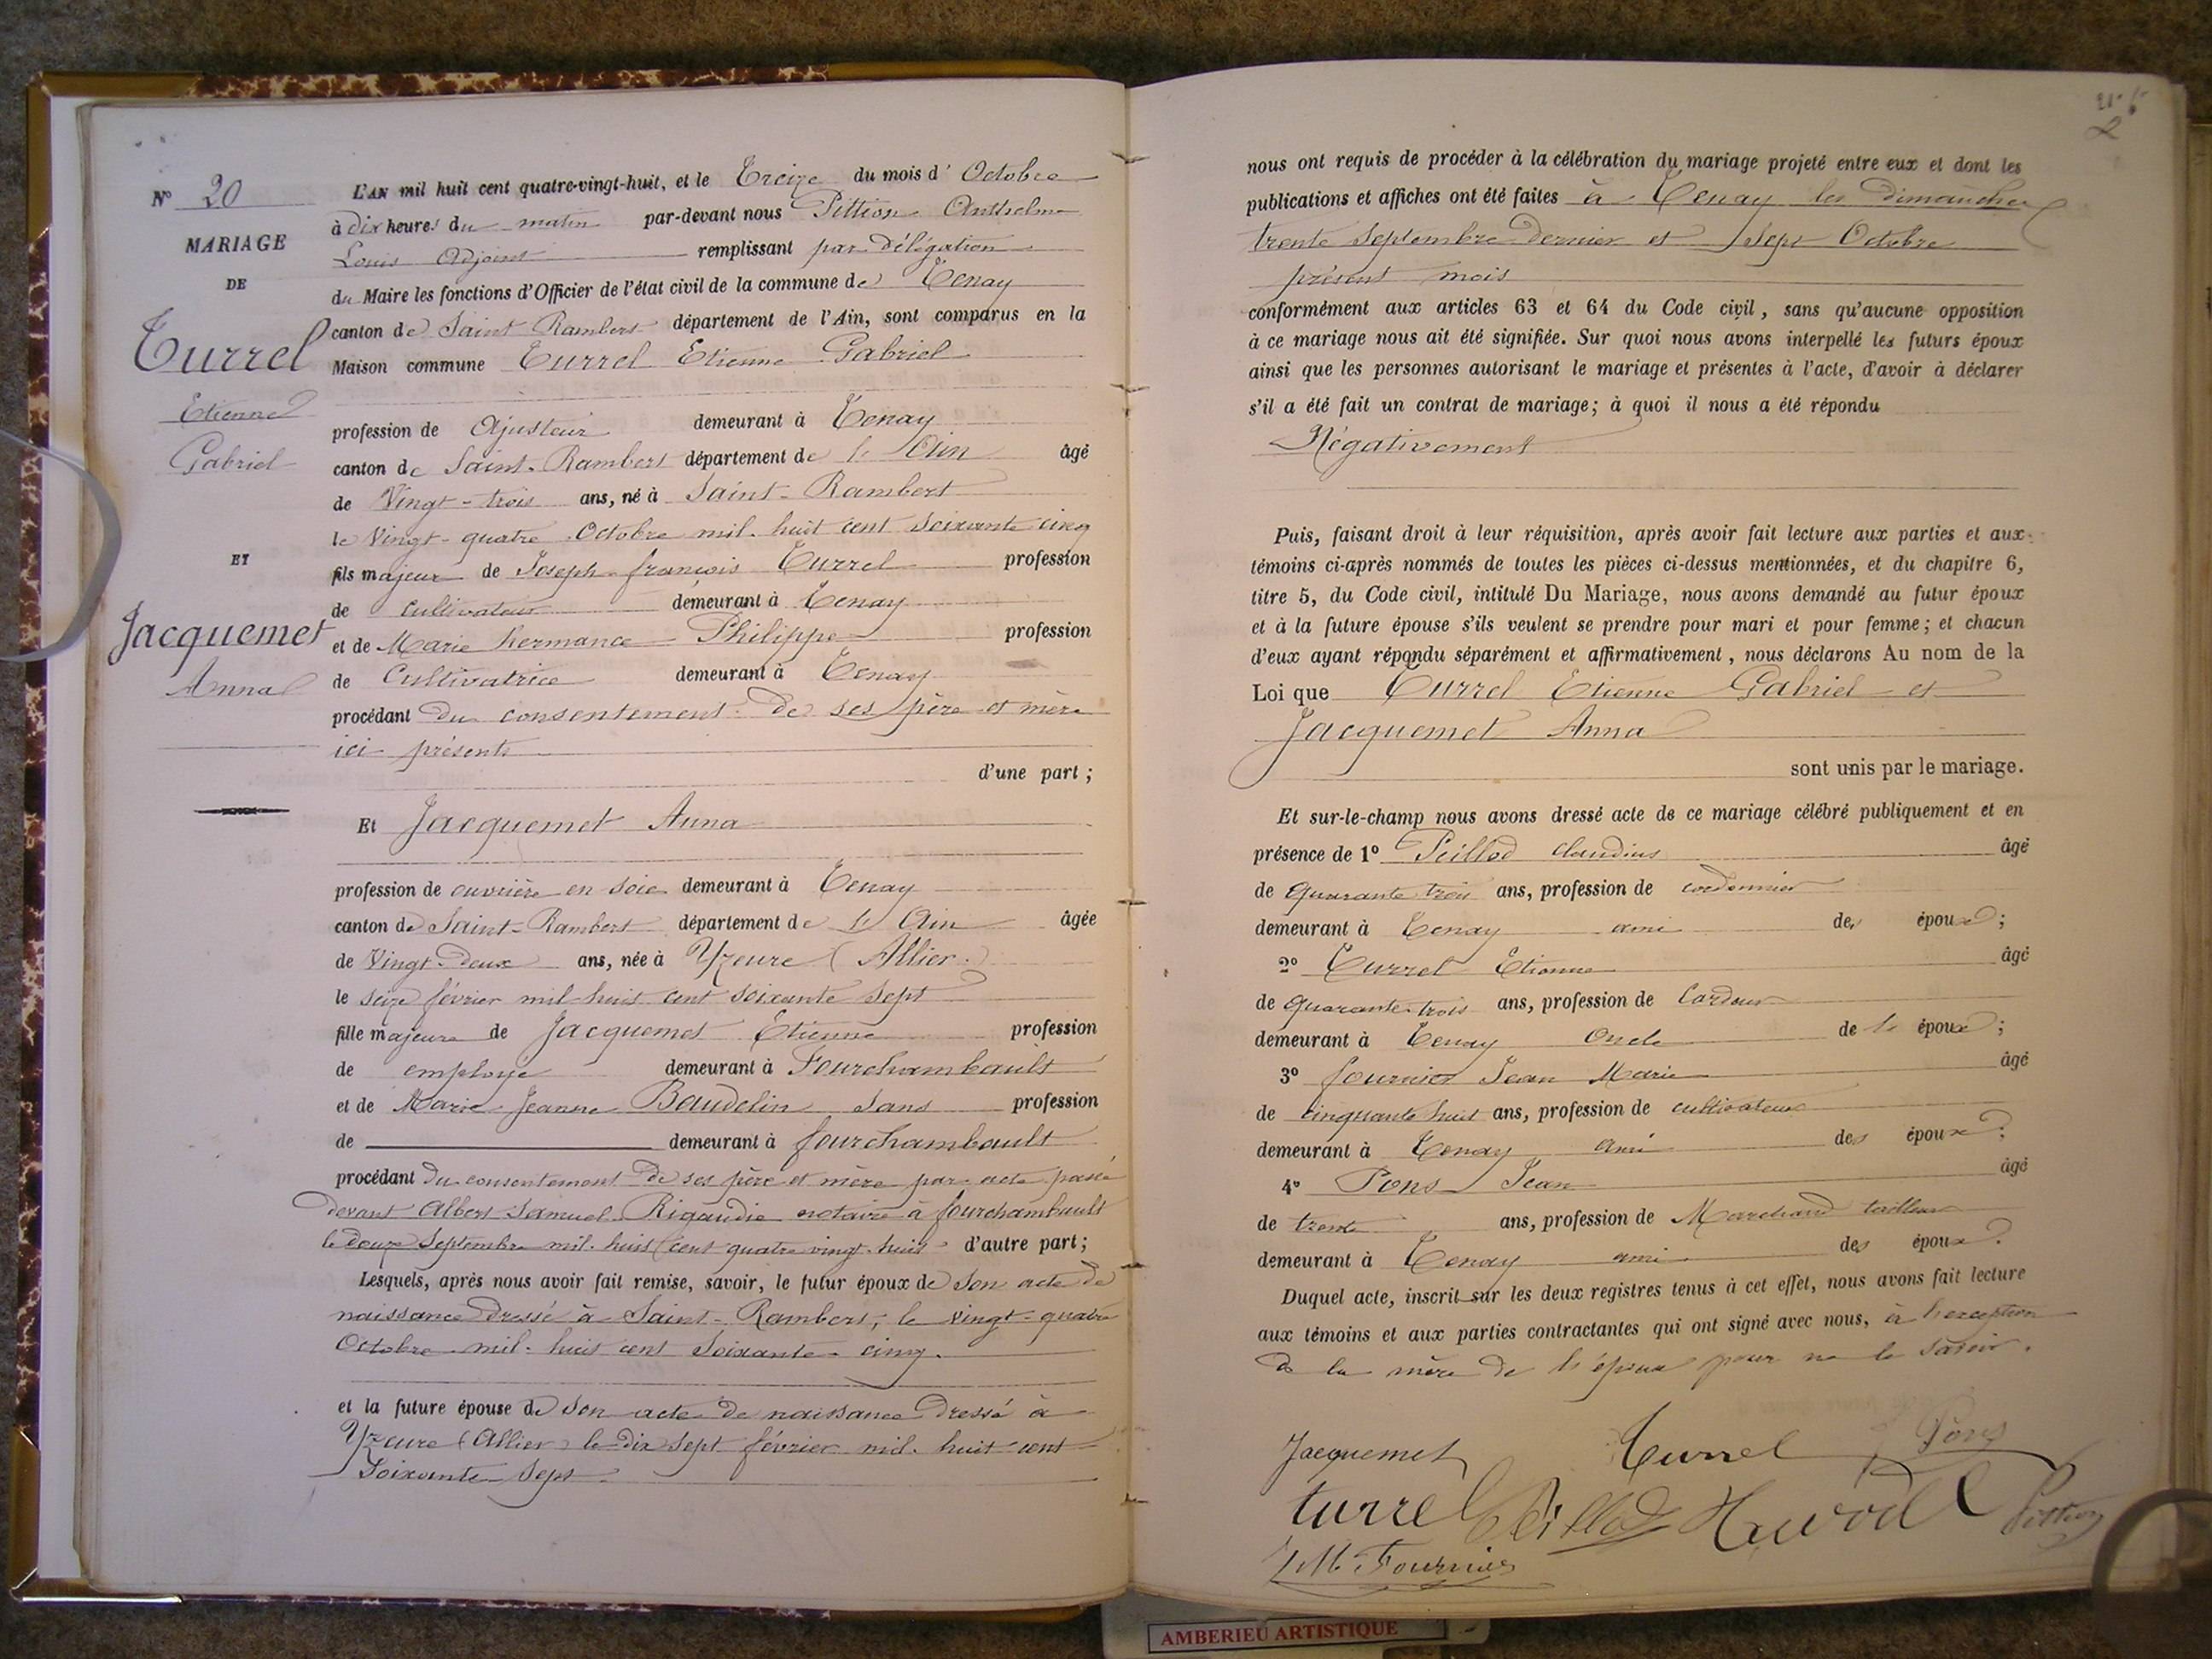 N° 20
MARIAGE
DE
Turrel
Etienne
Gabriel
ET
Jacquemet
Anna
L'AN mil huit cent quatre-vingt-huit, et le Treize du mois d'Octobre
à dix heures du matin par-devant nous Pittion Anthelme
Louis Adjoint remplissant par délégation
du Maire les fonctions d'Officier de l'état civil de la commune de Tenay
canton de Saint Rambert département de l'Ain, sont comparus en la
Maison commune Turrel Etienne Gabriel
profession de Ajusteur demeurant à Tenay
canton de Saint-Rambert département de l'Ain âgé
de Vingt-trois ans, né à Saint-Rambert
le Vingt-quatre Octobre mil huit cent soixante cinq
fils majeur de Joseph françois Turrel profession
de cultivateur demeurant à Tenay
et de Marie hermance Philippe profession
de Cultivatrice demeurant à Tenay
procédant du consentement de ses père et mère
ici présents
d'une part ;
Et Jacquemet Anna
profession de ouvrière en soie demeurant à Tenay
canton de Saint-Rambert département de l'Ain âgée
de Vingt-Deux ans, née à Yzeure (Allier.)
le seize février mil huit cent soixante sept
fille majeure de Jacquemet Etienne profession
de employé demeurant à Fourchambault
et de Marie Jeanne Baudelin sans profession
de demeurant à fourchambault
procédant du consentement de ses père et mère par acte passé
devant Albert Samuel Rigaudie notaire à fourchambault
le douze Septembre mil huit cent quatre vingt huit d'autre part ;
Lesquels, après nous avoir fait remise, savoir, le futur époux de son acte de
naissance dressé à Saint-Rambert, le vingt-quatre
Octobre mil huit cent soixante cinq.
et la future épouse de son acte de naissance dressé à
Yzeure (Allier) le dix sept février mil huit cent
soixante sept
nous ont requis de procéder à la célébration du mariage projeté entre eux et dont les
publications et affiches ont été faites à Tenay les dimanches
trente septembre dernier et sept Octobre
présent mois
conformément aux articles 63 et 64 du Code civil, sans qu'aucune opposition
à ce mariage nous ait été signifiée. Sur quoi nous avons interpellé les futurs époux
ainsi que les personnes autorisant le mariage et présentes à l'acte, d'avoir à déclarer
s'il a été fait un contrat de mariage; à quoi il nous a été répondu
Négativement
Puis, faisant droit à leur réquisition, après avoir fait lecture aux parties et aux
témoins ci-après nommés de toutes les pièces ci-dessus mentionnées, et du chapitre 6,
titre 5, du Code civil, intitulé Du Mariage, nous avons demandé au futur époux
et à la future épouse s'ils veulent se prendre pour mari et pour femme; et chacun
d'eux ayant répondu séparément et affirmativement, nous déclarons Au nom de la
Loi que Turrel Etienne Gabriel et
Jacquemet Anna
sont unis par le mariage.
Et sur-le-champ nous avons dressé acte de ce mariage célébré publiquement et en
présence de 1° Peillod Claudius âgé
de quarante trois ans, profession de cordonnier
demeurant à Tenay ami des époux ;
2° Turrel Etienne âgé
de quarante-trois ans, profession de Cardeur
demeurant à Tenay Oncle de l'époux ;
3° fournier Jean Marie âgé
de cinquante huit ans, profession de cultivateur
demeurant à Tenay ami des époux ;
4° Pons Jean âgé
de trente ans, profession de Marchand tailleur
demeurant à Tenay ami des époux.
Duquel acte, inscrit sur les deux registres tenus à cet effet, nous avons fait lecture
aux témoins et aux parties contractantes qui ont signé avec nous, à l'exception
de la mère de l'époux pour ne le savoir.
Jacquemet Turrel Pons
turrel Peillod Pittion
J M Fournier
AMBERIEU ARTISTIQUE